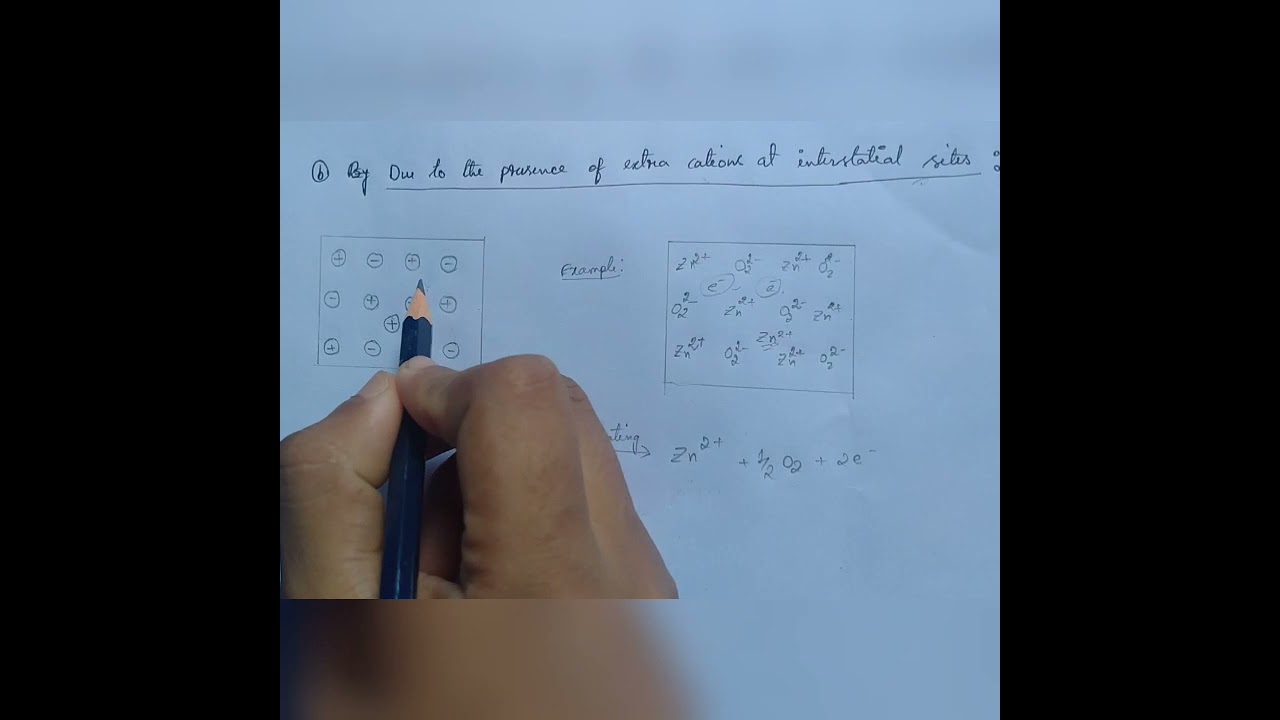 ⓑ By Due to the presence of extra cations at interstatial sites :
⊕ ⊖ ⊕ ⊖
⊖ ⊕ ⊕
⊕
⊕ ⊖ ⊖
Example:
Zn²⁺ O₂²⁻ Zn²⁺ O₂²⁻
e⁻ e⁻
O₂²⁻ Zn²⁺ O₂²⁻ Zn²⁺
Zn²⁺
Zn²⁺ O₂²⁻ Zn²⁺ O₂²⁻
→ Zn²⁺ + ½ O₂ + 2e⁻